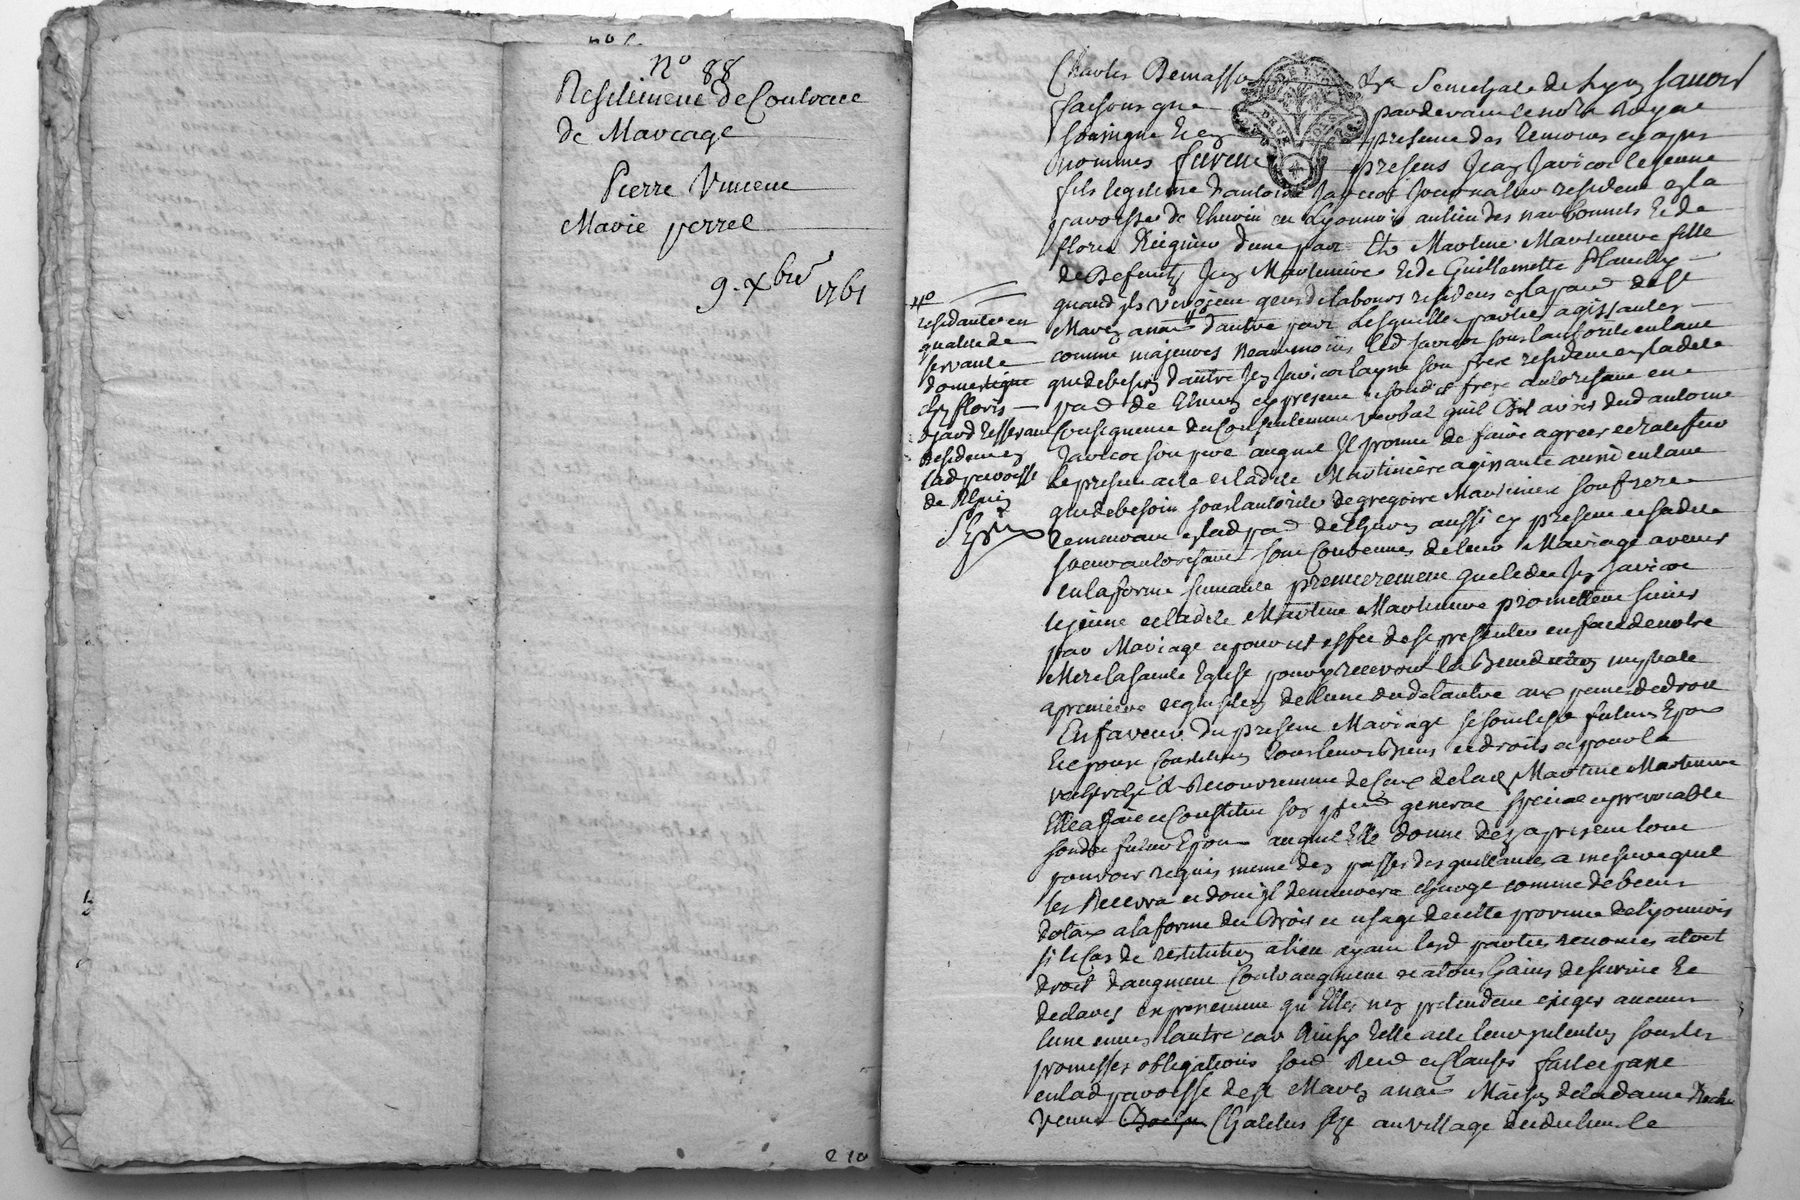 No 88
Resiliment de Contract
de Mariage
Pierre Vincent
Marie perret
9. Xbre 1761
210
Charles Demasso Senechal de Lyon savoir
faisons que pardevant le notre Royal
soussigné et en presence des temoins cy apres
nommes furent presens Jean Javicot le jeune
fils legitime d'antoine Javicot Journalier resident en la
paroisse de Thurin en Lyonnois au lieu des narbonnets et de
d'une part Et Martine Martiniere fille
de Defunts Jean Martiniere et de Guillemette
quand ils vivojent gens de labours residens en la par de St
d'autre part Lesquelles parties agissantes
comme majeures neanmoins led Javicot sous l'autorité en tant
que de besoin d'autre Jean Javicot layné son frere resident en ladite
par de cy present sond frere autorisant en
consequence du Consentement verbal quil dit avoir dud antoine
Javicot son pere auquel Il promet de faire agreer et ratifier
le present acte et ladite Martiniere agissante aussi en tant
que de besoin sous l'autorité de gregoire Martiniere son frere
demeurant en lad par de aussi cy present et sadite
soeur autorisant sont Convenues de leur Mariage avenir
en la forme suivante premierement que ledit Jean Javicot
le jeune et ladite Martine Martiniere promettent s'unir
par Mariage et pour cet effet de se presenter en face de notre
Mere la sainte Eglise pour y recevoir la Benediction nuptiale
a premiere requisition de l'une ou de l'autre aux peines de droit
En faveur du present Mariage se sont lesd futurs Epoux
Et epouse Constitués tous leurs Biens et droits et pour la
recherche & Recouvrement de ceux de lad Martine Martiniere
Elle a fait et Constitué son general special et irrevocable
sondit futur Epoux auquel Elle donne des a present tout
pouvoir requis meme den passer des quittances a mesure quil
les Recevra et dont il demeurera chargé comme de biens
dotaux a la forme du Droit et usage de cette province de lyonnois
si le Cas de restitution a lieu ayant lesd parties renoncés a tout
droit d'augment Contraugment et a tous Gains de survie Et
declarés expressement qu'Elles nen pretendent exiger aucuns
l'une envers l'autre car Ainsy telle a été leur intention sous les
promesses obligations soud Renod et Clauses fait et passé
en lad paroisse de St Maison de la dame
veuve Chalelus Sise au village dudit lieu le
residante en
qualité de
servante
domestique
chez floris
Ojard Tisserant
Resident en
lad paroisse